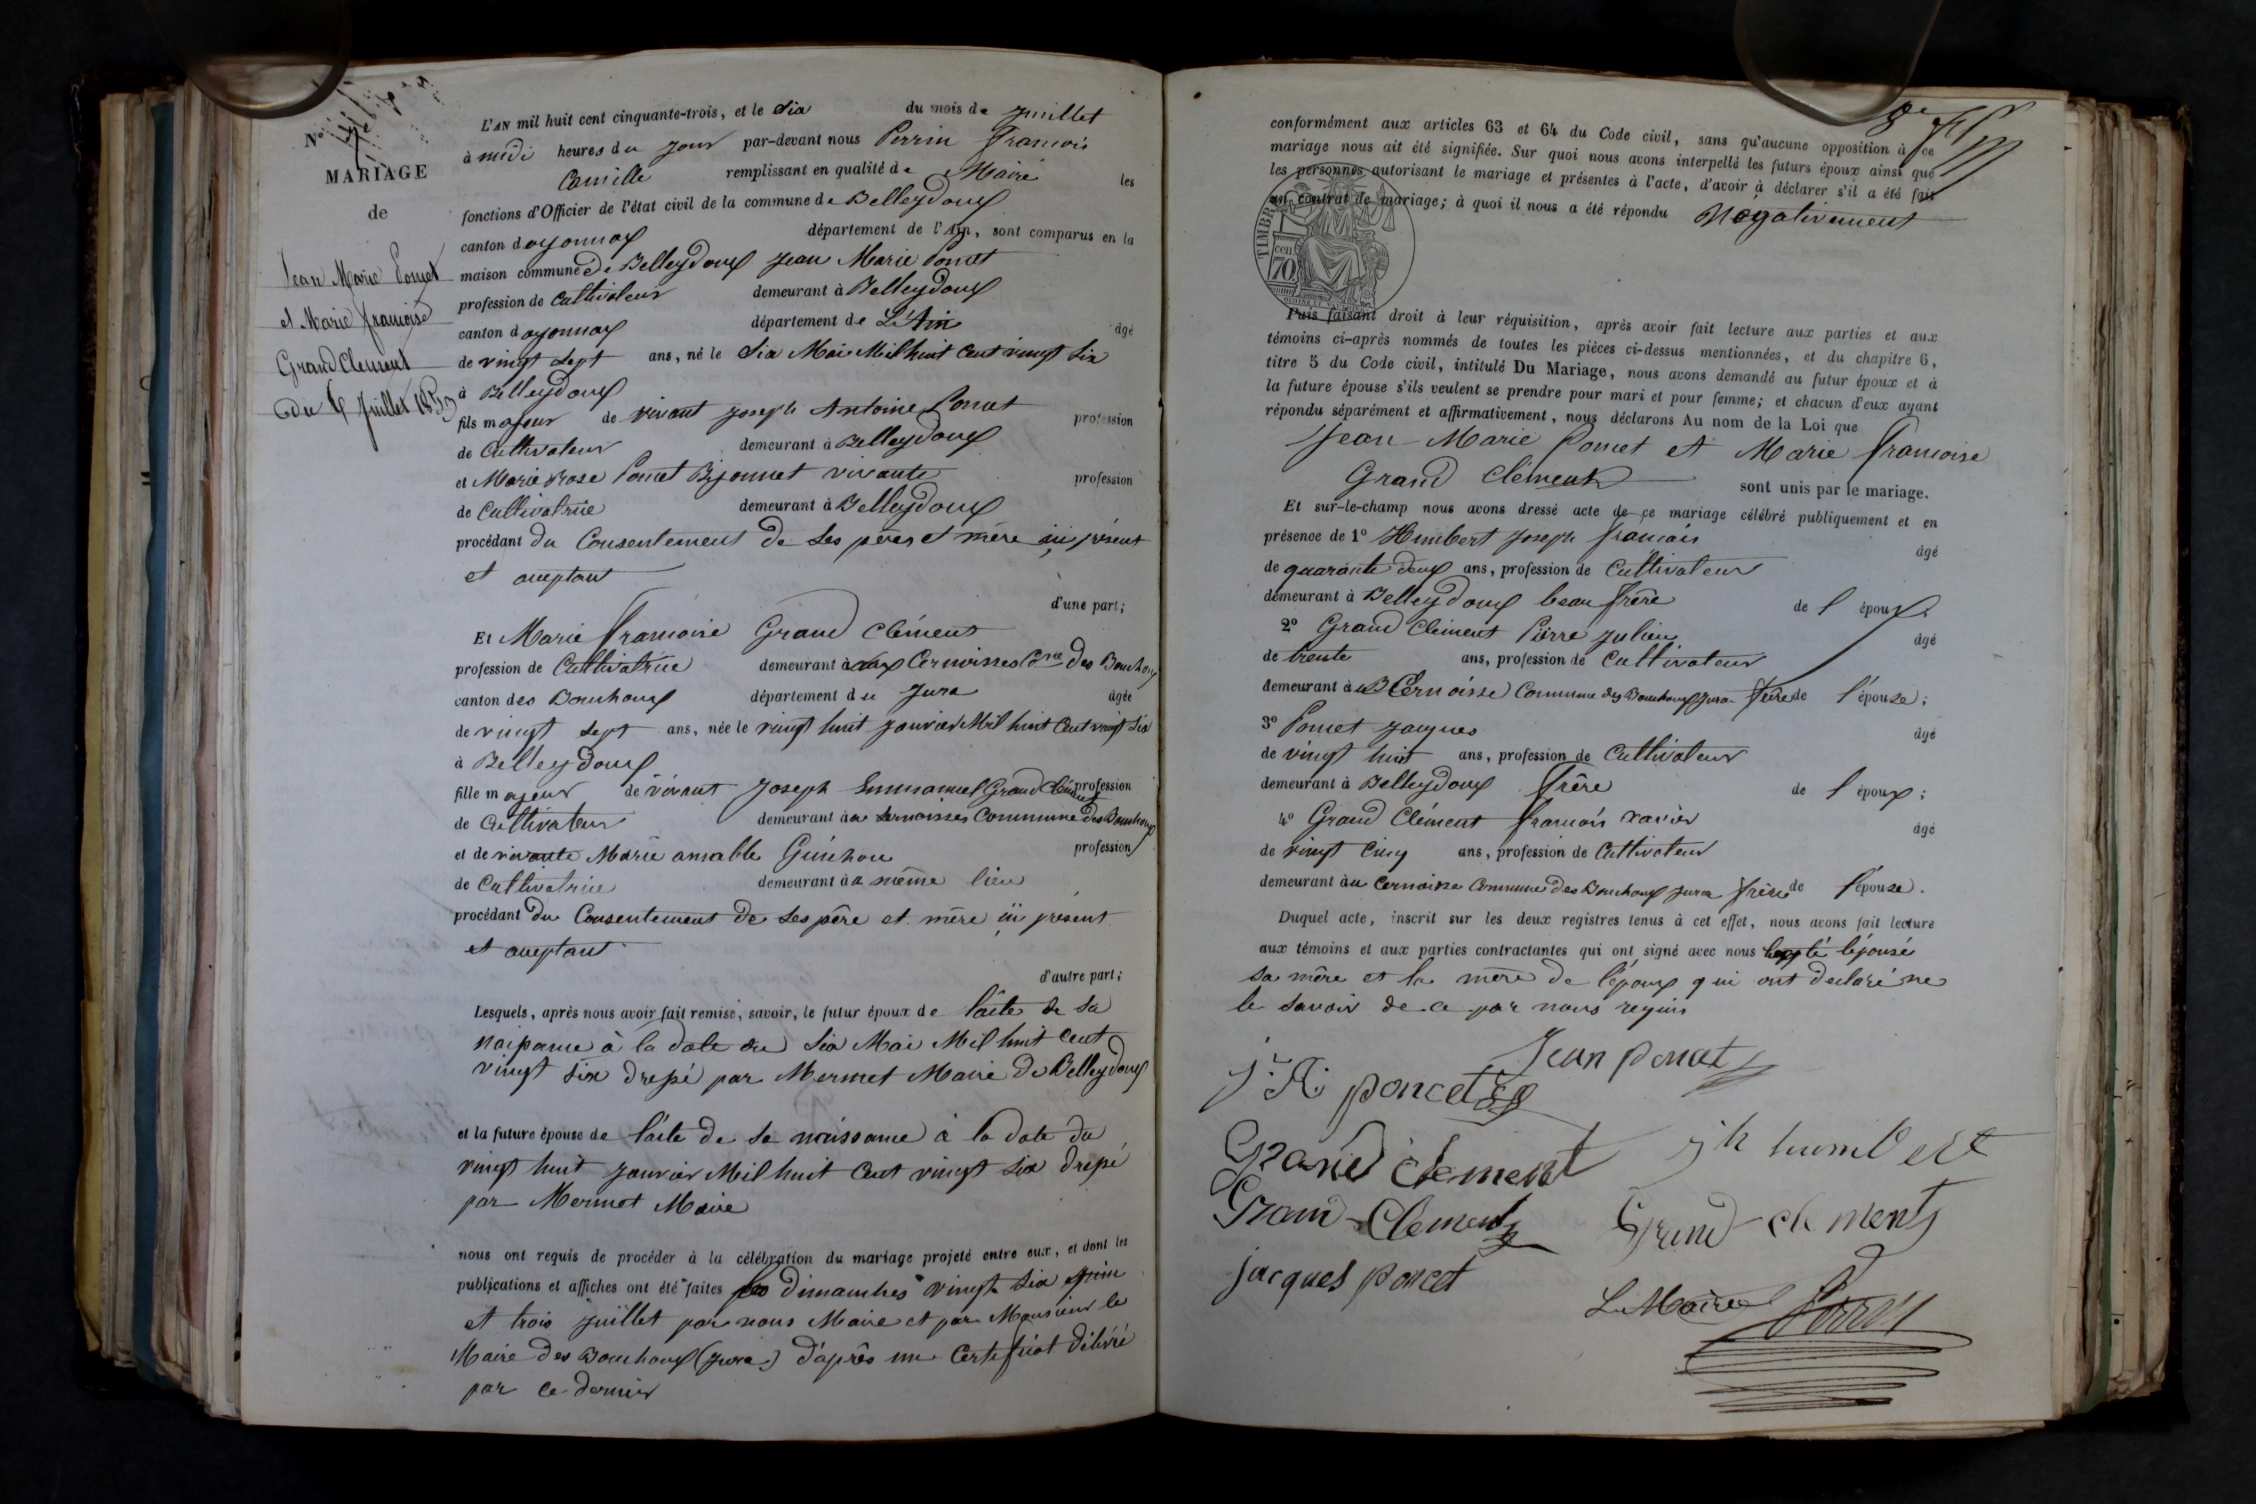 N° 7e
MARIAGE
de
Jean Marie Poncet
et Marie françoise
Grand Clement
du 6 Juillet 1853
L'AN mil huit cent cinquante-trois, et le Six du mois de Juillet
à midi heures du jour par-devant nous Perrin François
Camille remplissant en qualité de Maire les
fonctions d'Officier de l'état civil de la commune de Belleydoux
canton d'oyonnax département de l'Ain, sont comparus en la
maison commune de Belleydoux Jean Marie Poncet
profession de Cultivateur demeurant à Belleydoux
canton d'oyonnax département de L'Ain âgé
de vingt sept ans, né le Six Mai Mil huit Cent vingt Six
à Belleydoux
fils majeur de vivant Joseph Antoine Poncet profession
de Cultivateur demeurant à Belleydoux
et Marie Rose Poncet Bijonnet vivante profession
de Cultivatrice demeurant à Belleydoux
procédant du Consentement de ses pères et mère ici présent
et acceptant
d'une part;
Et Marie françoise Grand Clément
profession de Cultivatrice demeurant à aux Cernoisses Cne des Bouchoux
canton des Bouchoux département du Jura âgée
de vingt sept ans, née le vingt huit Janvier Mil huit Cent vingt Six
à Belleydoux
fille majeur de vivant Joseph Emmanuel Grand Clément profession
de Cultivateur demeurant à au Sernoisses Commune des Bouchoux
et de vivante Marie amable Guichon profession
de Cultivatrice demeurant à a même lieu
procédant du Consentement de ses père et mère ici présent
et acceptant
d'autre part;
Lesquels, après nous avoir fait remise, savoir, le futur époux de l'acte de sa
naissance à la date du Six Mai Mil huit Cent
vingt six dressé par Mermet Maire de Belleydoux
et la future épouse de l'acte de sa naissance à la date du
vingt huit Janvier Mil huit Cent vingt Six dressé
par Mermet Maire
nous ont requis de procéder à la célébration du mariage projeté entre eux, et dont les
publications et affiches ont été faites les dimanches vingt six juin
et trois juillet par nous Maire et par Monsieur le
Maire des Bouchoux (Jura) d'après un Certificat délivré
par ce dernier
8e
conformément aux articles 63 et 64 du Code civil, sans qu'aucune opposition à ce
mariage nous ait été signifiée. Sur quoi nous avons interpellé les futurs époux ainsi que
les personnes autorisant le mariage et présentes à l'acte, d'avoir à déclarer s'il a été fait
un contrat de mariage; à quoi il nous a été répondu Négativement
TIMBRE
70 cen
Puis faisant droit à leur réquisition, après avoir fait lecture aux parties et aux
témoins ci-après nommés de toutes les pièces ci-dessus mentionnées, et du chapitre 6,
titre 5 du Code civil, intitulé Du Mariage, nous avons demandé au futur époux et à
la future épouse s'ils veulent se prendre pour mari et pour femme; et chacun d'eux ayant
répondu séparément et affirmativement, nous déclarons Au nom de la Loi que
Jean Marie Poncet et Marie françoise
Grand Clément sont unis par le mariage.
Et sur-le-champ nous avons dressé acte de ce mariage célébré publiquement et en
présence de 1° Humbert Joseph français âgé
de quarante deux ans, profession de Cultivateur
demeurant à Belleydoux beau frère de l'époux.
2° Grand Clément Pierre Julien âgé
de trente ans, profession de Cultivateur
demeurant à Cernoisse Commune des Bouchoux Jura frère de l'épouse;
3° Poncet Jacques âgé
de vingt huit ans, profession de Cultivateur
demeurant à Belleydoux frère de l'époux;
4° Grand Clément françois xavier âgé
de vingt Cinq ans, profession de Cultivateur
demeurant àu Cernoisse Commune des Bouchoux Jura frère de l'épouse.
Duquel acte, inscrit sur les deux registres tenus à cet effet, nous avons fait lecture
aux témoins et aux parties contractantes qui ont signé avec nous excepté l'épouse
sa mère et la mère de l'époux qui ont déclaré ne
le savoir de ce par nous requis
Jean poncet
j. A. poncet
Grand clement
jh humbert
Grand-Clement
Grand-clement
jacques poncet
Le Maire Perrin